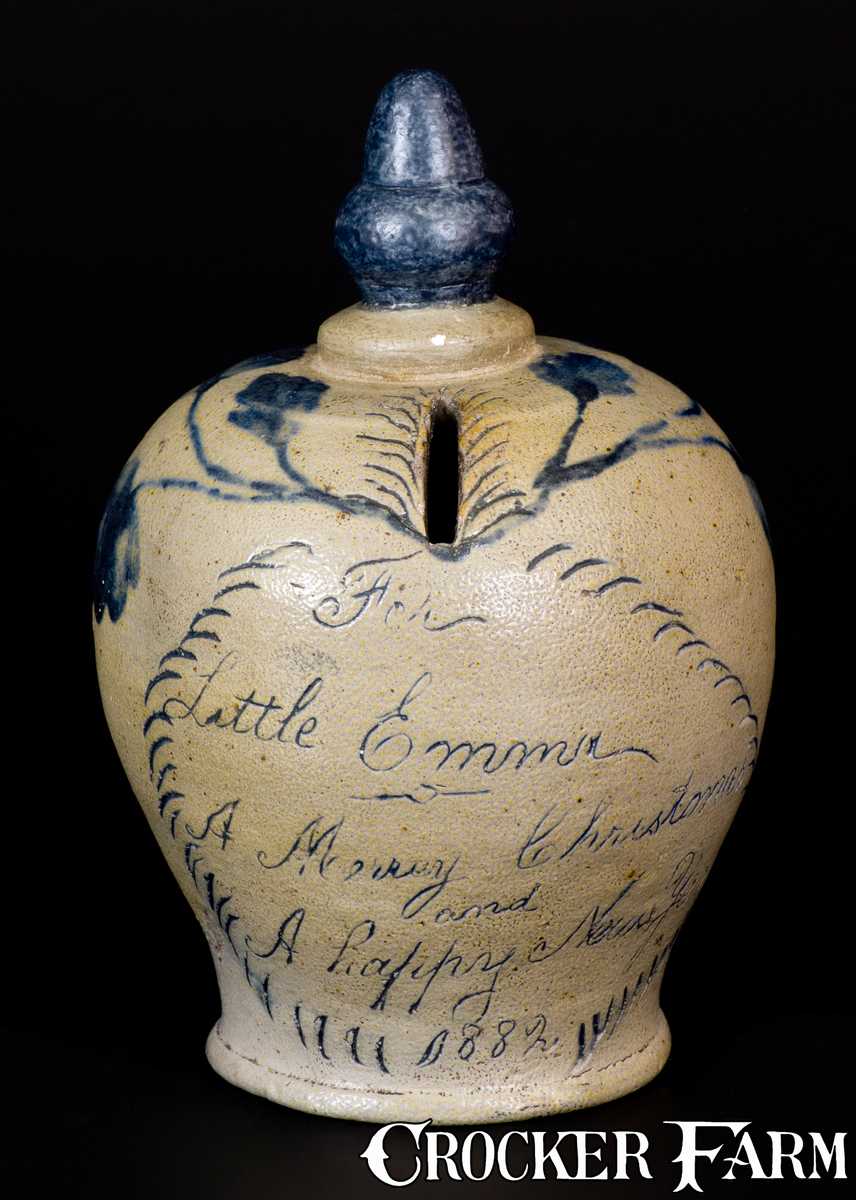 For
Little Emma
A Merry Christmas
and
A happy New
1882
CROCKER FARM